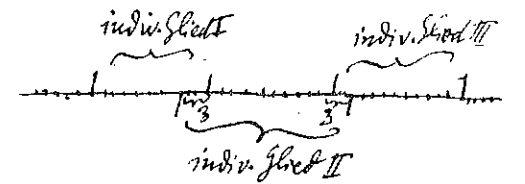 indiv. Glied I
indiv. Glied III
3 3
indiv. Glied II